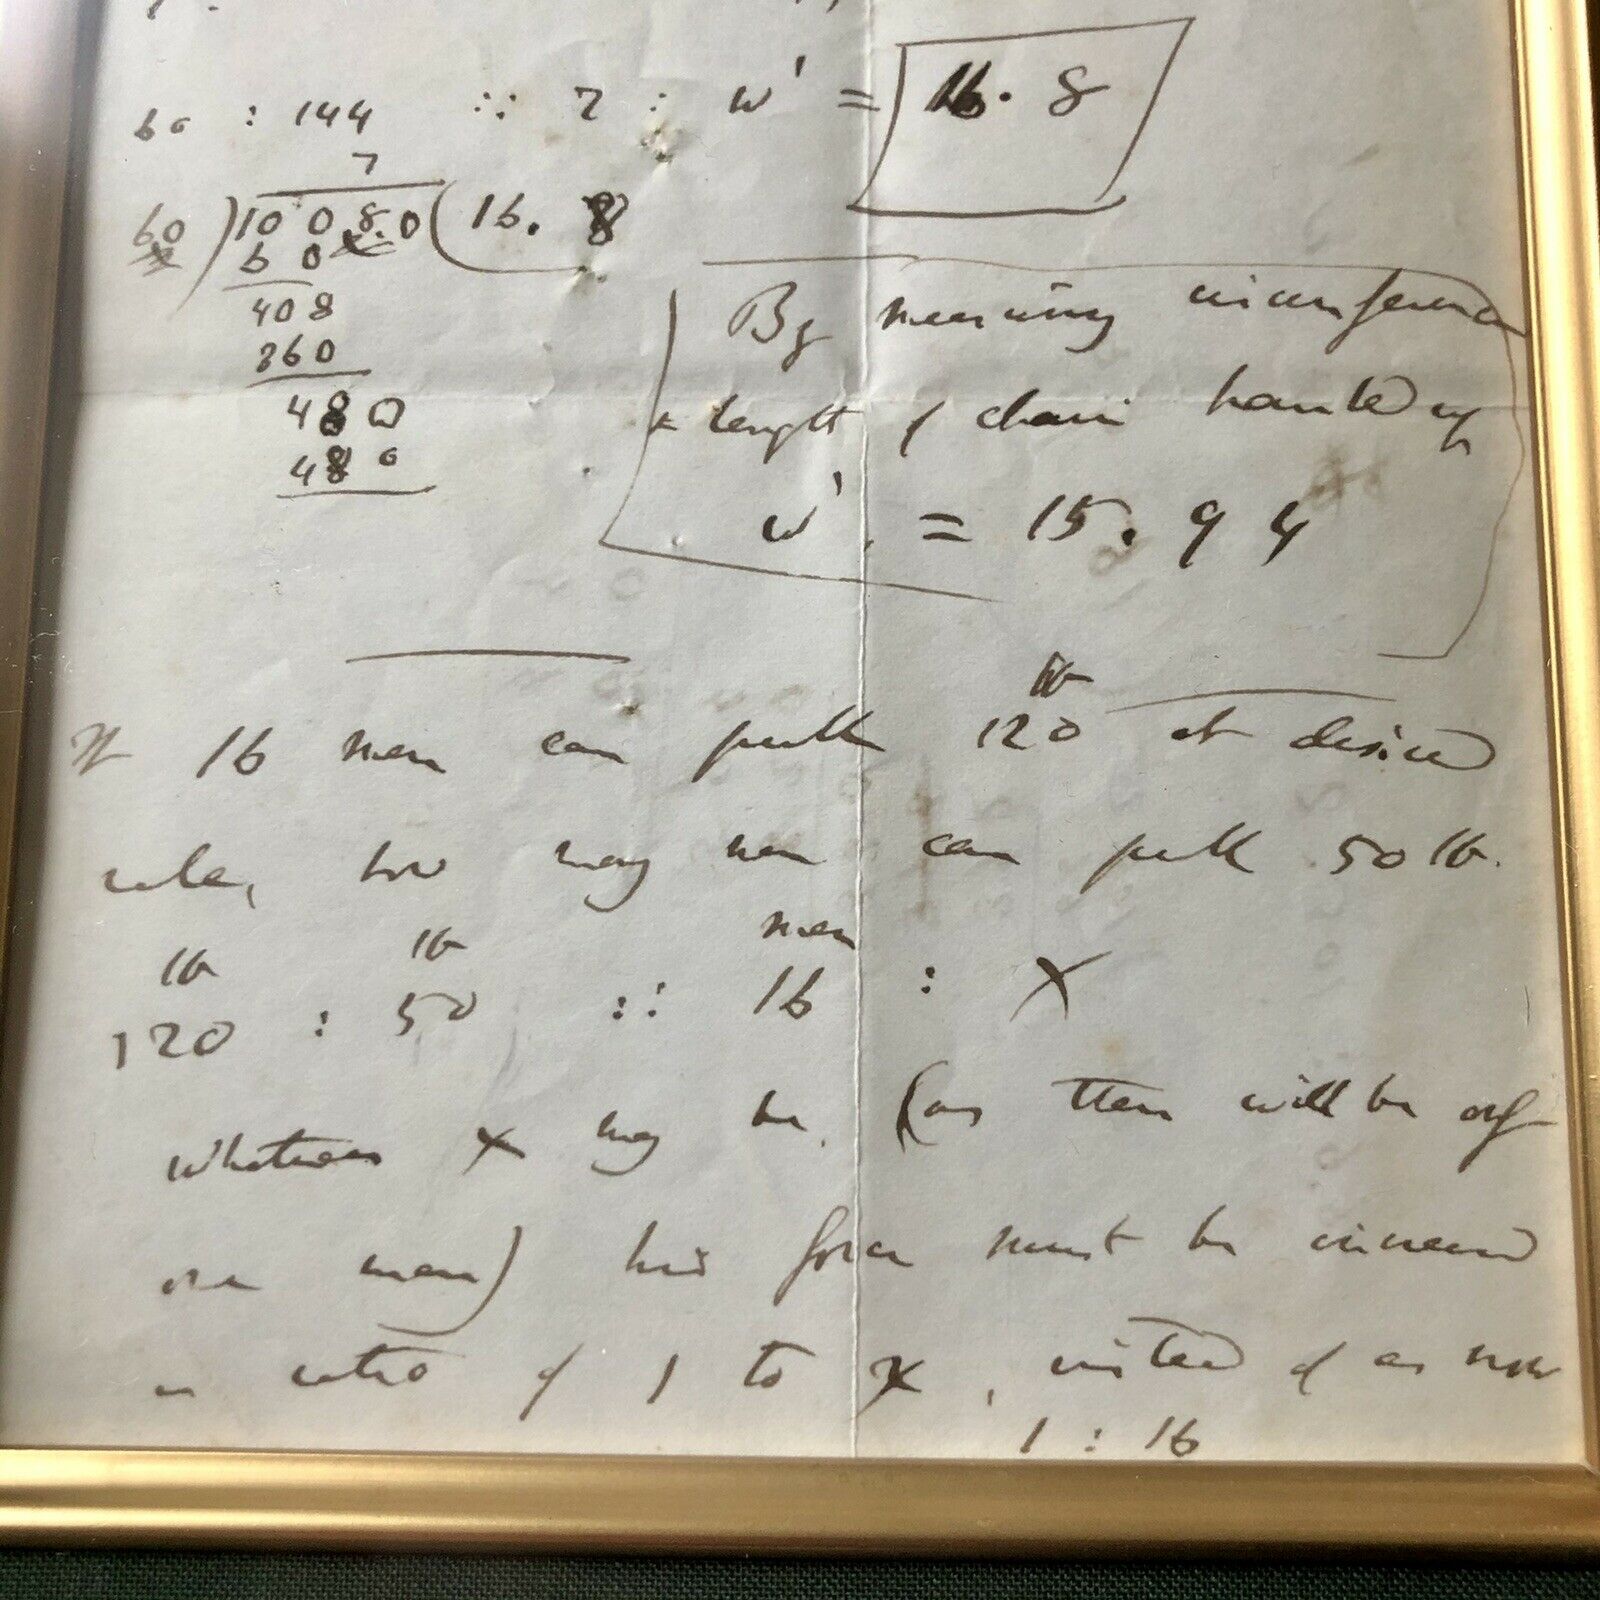 60 : 144 :: 7 : w' = 16.8
7
60 ) 1008.0 ( 16.8
60
408
360
480
480
By measuring circumference
& length of chain hauled up
w' = 15.94
lb
If 16 men can pull 120 at desired
rate, how many men can pull 50 lb.
lb lb men
120 : 50 :: 16 : x
Whatever x may be, (as there will be only
one man) his force must be increased
in ratio of 1 to x, instead of as now
1 : 16